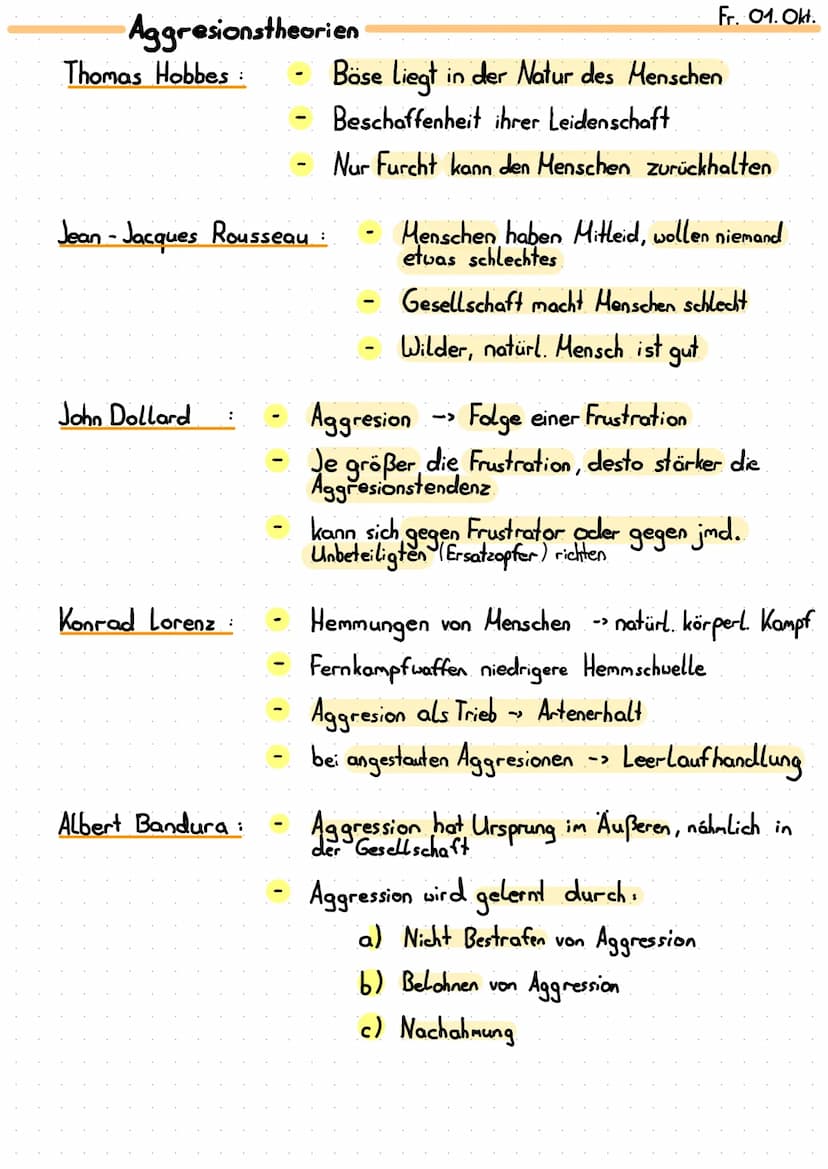 Fr. 01. Okt.
Aggresionstheorien
Thomas Hobbes :
- Böse liegt in der Natur des Menschen
- Beschaffenheit ihrer Leidenschaft
- Nur Furcht kann den Menschen zurückhalten
Jean - Jacques Rousseau :
- Menschen haben Mitleid, wollen niemand
etwas schlechtes
- Gesellschaft macht Menschen schlecht
- Wilder, natürl. Mensch ist gut
John Dollard :
- Aggresion -> Folge einer Frustration
- Je größer die Frustration, desto stärker die
Aggresionstendenz
- kann sich gegen Frustrator oder gegen jmd.
Unbeteiligten (Ersatzopfer) richten
Konrad Lorenz :
- Hemmungen von Menschen -> natürl. körperl. Kampf
- Fernkampfwaffen niedrigere Hemmschwelle
- Aggresion als Trieb -> Artenerhalt
- bei angestauten Aggresionen -> Leerlaufhandlung
Albert Bandura :
- Aggression hat Ursprung im Äußeren, nähmlich in
der Gesellschaft
- Aggression wird gelernt durch:
a) Nicht Bestrafen von Aggression
b) Belohnen von Aggression
c) Nachahmung